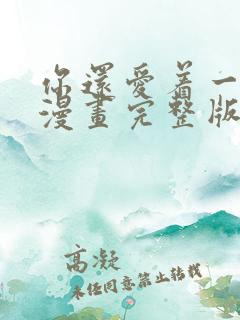 你還愛着一
漫畫完整版
高凝
未任同意禁止转载